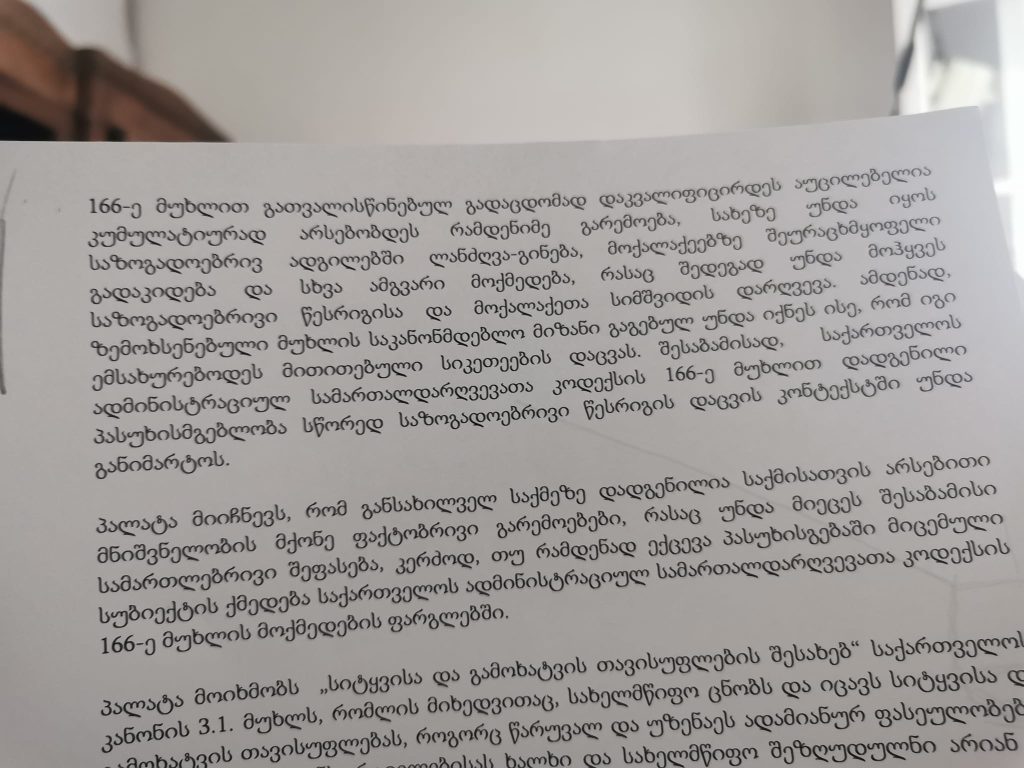 166-ე მუხლით გათვალისწინებულ გადაცდომად დაკვალიფიცირდეს აუცილებელია
კუმულატიურად არსებობდეს რამდენიმე გარემოება, სახეზე უნდა იყოს
საზოგადოებრივ ადგილებში ლანძღვა-გინება, მოქალაქეებზე შეურაცხმყოფელი
გადაკიდება და სხვა ამგვარი მოქმედება, რასაც შედეგად უნდა მოჰყვეს
საზოგადოებრივი წესრიგისა და მოქალაქეთა სიმშვიდის დარღვევა. ამდენად,
ზემოხსენებული მუხლის საკანონმდებლო მიზანი გაგებულ უნდა იქნეს ისე, რომ იგი
ემსახურებოდეს მითითებული სიკეთეების დაცვას. შესაბამისად, საქართველოს
ადმინისტრაციულ სამართალდარღვევათა კოდექსის 166-ე მუხლით დადგენილი
პასუხისმგებლობა სწორედ საზოგადოებრივი წესრიგის დაცვის კონტექსტში უნდა
განიმარტოს.
პალატა მიიჩნევს, რომ განსახილველ საქმეზე დადგენილია საქმისათვის არსებითი
მნიშვნელობის მქონე ფაქტობრივი გარემოებები, რასაც უნდა მიეცეს შესაბამისი
სამართლებრივი შეფასება, კერძოდ, თუ რამდენად ექცევა პასუხისგებაში მიცემული
სუბიექტის ქმედება საქართველოს ადმინისტრაციულ სამართალდარღვევათა კოდექსის
166-ე მუხლის მოქმედების ფარგლებში.
პალატა მოიხმობს „სიტყვისა და გამოხატვის თავისუფლების შესახებ“ საქართველოს
კანონის 3.1. მუხლს, რომლის მიხედვითაც, სახელმწიფო ცნობს და იცავს სიტყვისა
გამოხატვის თავისუფლებას, როგორც წარუვალ და უზენაეს ადამიანურ
ხალხი და სახელმწიფო შეზღუდულნი არიან